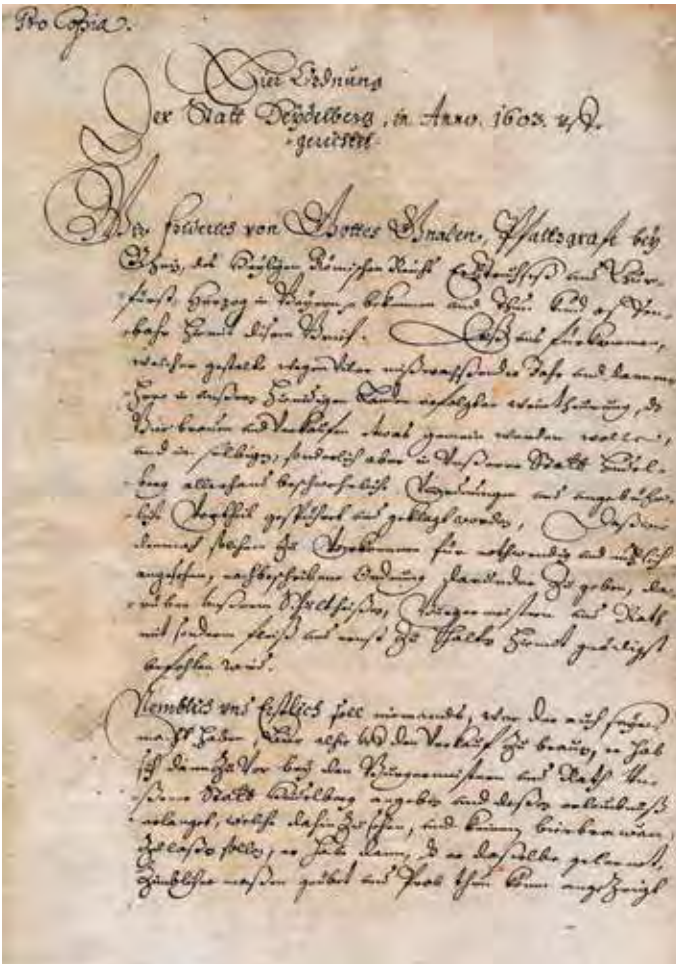 Pro Copia.
Bier Ordnung
Der Statt Heydelberg, in Anno. 1603.
gerichtet
Wir Friderich von Gottes Gnaden, Pfaltzgraff bey
Rhein, des Heyligen Römischen Reichs Ertztruchseß und Chur-
fürst, Hertzog in Bayern, bekennen und thun kund
hiemit disem Brief. Alß uns fürkommen,
welcher gestalt wegen viler mißwachsender Jahr und dannen-
hero in unseren Landen erfolgter weintheurung, das
Bierbrauen und verkaufen etwas gemein werden wollen,
und in selbigen, sonderlich aber in unserer Statt Heidel-
berg allerhand beschwerliche Unordnungen und ungebühr-
liche Vortheil gespühret und geklagt worden, Daß wir
demnach solchem zu Vorkommen für nothwendig und nützlich
angesehen, nachbeschribene Ordnung darunder zu geben, da-
rüber unserem Schultheißen, Burgermeistern und Rath
mit sonderm fleiß und ernst zu halten hiemit gnedigst
befohlen wird.
Nemblich und Erstlich soll niemands, wer der auch seye
macht haben, Bier alhie uf den Verkauf zu brauen, er hab
sich dann zuvor bey den Burgermeistern und Rath un-
serer Statt Heidelberg angeben und dessen erlaubnuß
erlanget, welche dahin zu sehen, und keinen bierbrawen
zulaßen sollen, er hab dann, das er dasselbe gelernet,
ziemblicher maßen geübet und Prob thun kenn angezeigt